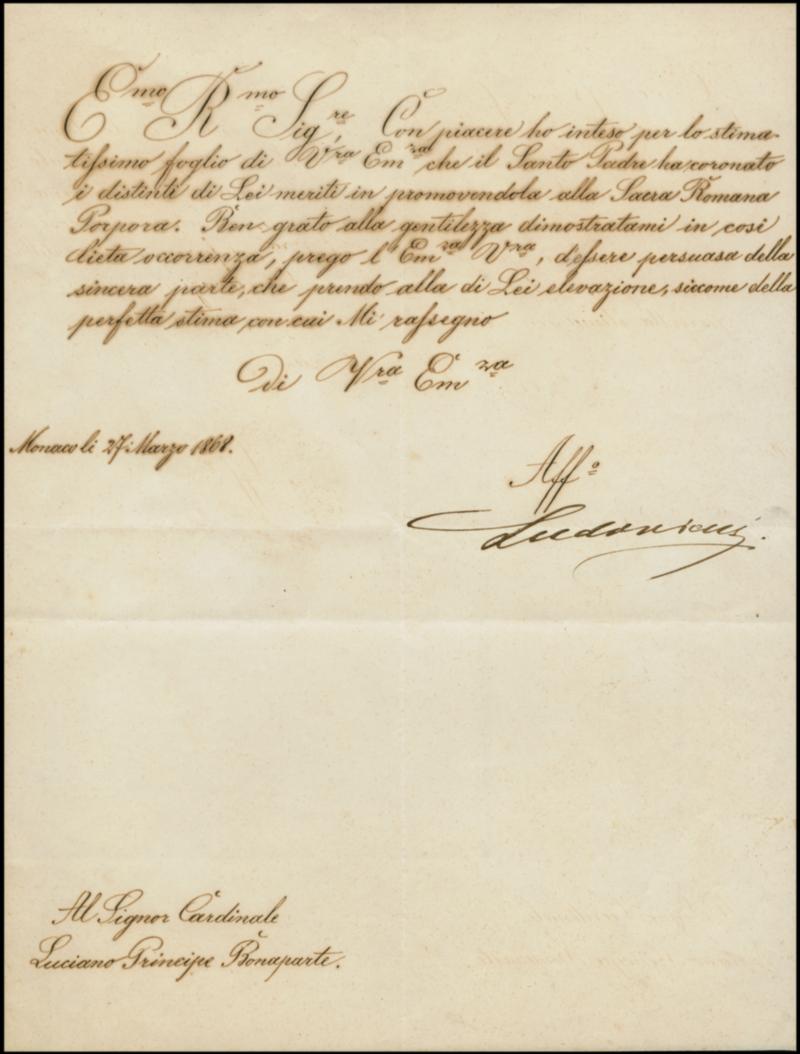 Emo Rmo Sigre, Con piacere ho inteso per lo stima-
tissimo foglio di Vra Emza che il Santo Padre ha coronato
i distinti di Lei meriti in promovendola alla Sacra Romana
Porpora. Ben grato alla gentilezza dimostratami in così
lieta occorrenza, prego l'Emza Vra, d'essere persuasa della
sincera parte, che prendo alla di Lei elevazione, siccome della
perfetta stima con cui Mi rassegno
Di Vra Emza
Monaco li 27 Marzo 1868.
Affo
Al Signor Cardinale
Luciano Principe Bonaparte.